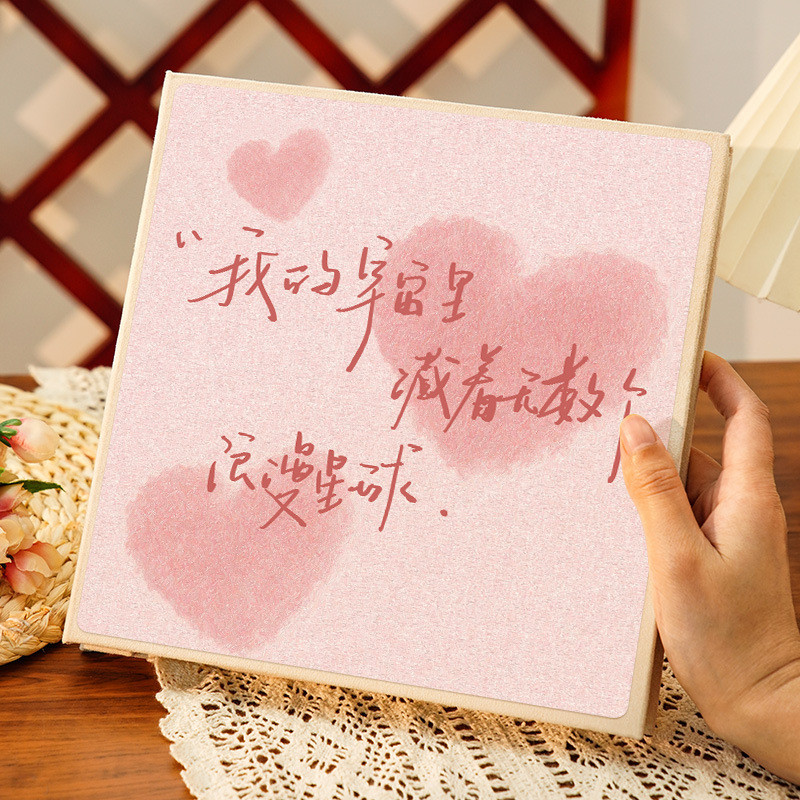 “我的宇宙里
藏着无数个
浪漫星球.